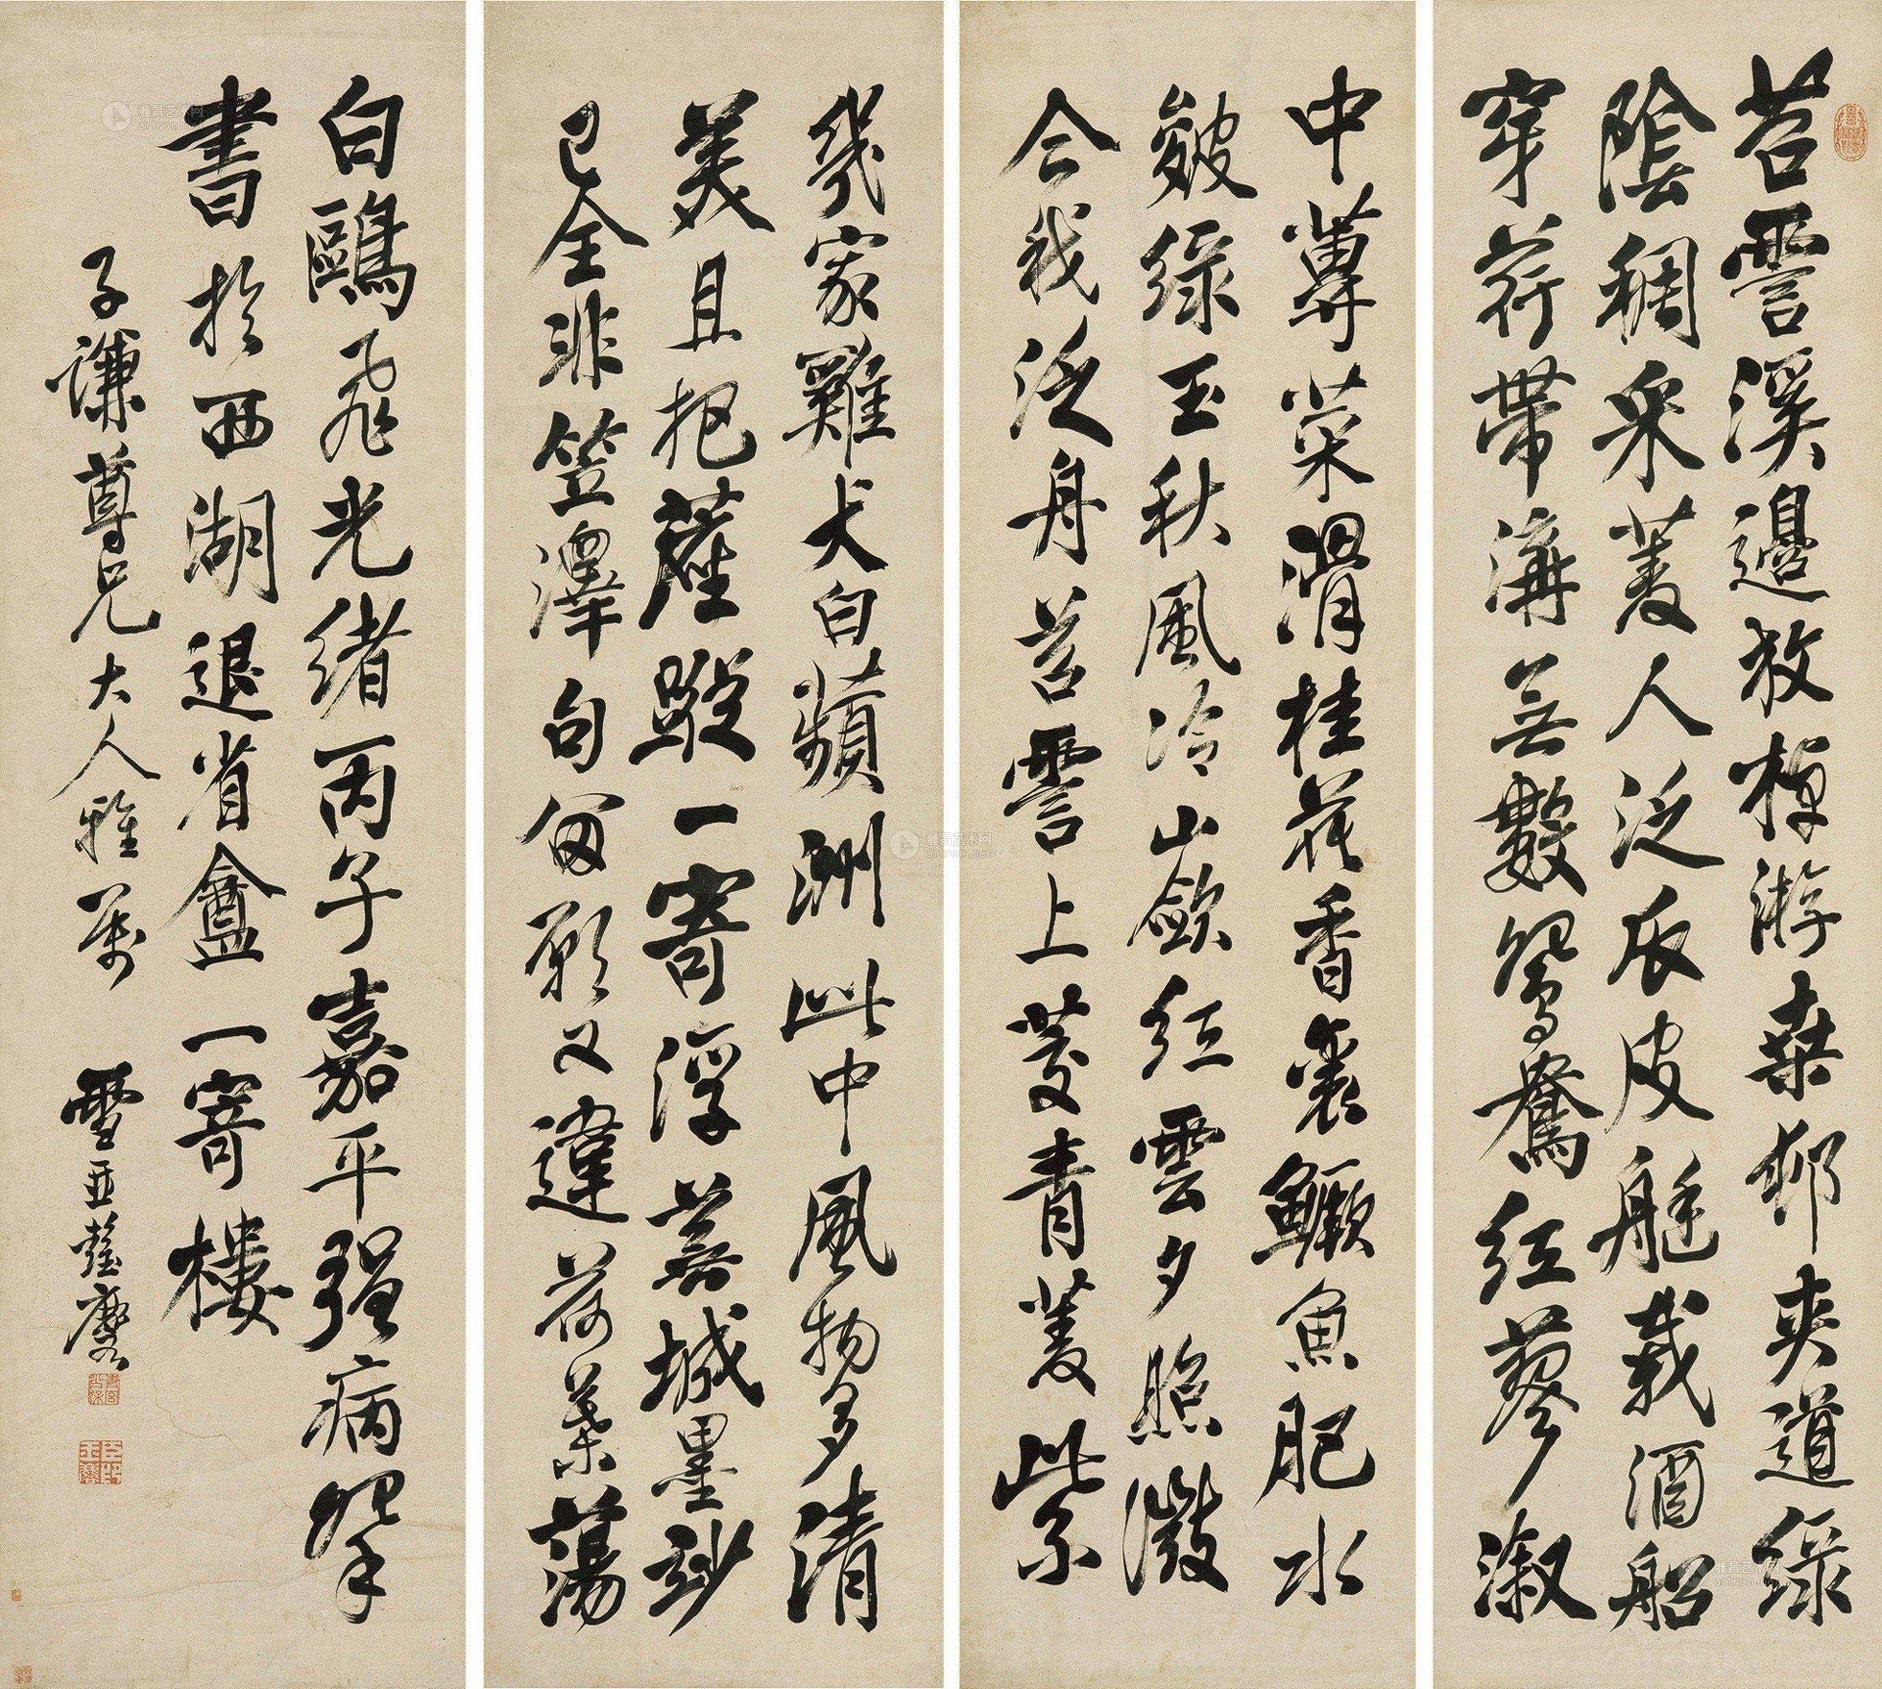 苕霅溪邊放棹游桑邨夾道綠
陰稠采菱人泛瓜皮艇載酒船
穿荇帶溝無數鴛鴦紅蓼漵
中蓴菜滑桂花香裏鱖魚肥水
皴綠玉秋風冷山斂紅雲夕照微
今我泛舟苕霅上芰青菱紫
幾家雞犬白蘋洲此中風物多清
美且把塵蹤一寄浮蕪城墨妙
已全非笠澤句留願又違荷葉蕩
白鷗飛光緒丙子嘉平強病拏
書於西湖退省盦一寄樓
子謙尊兄大人雅籤
雪亞彭麐